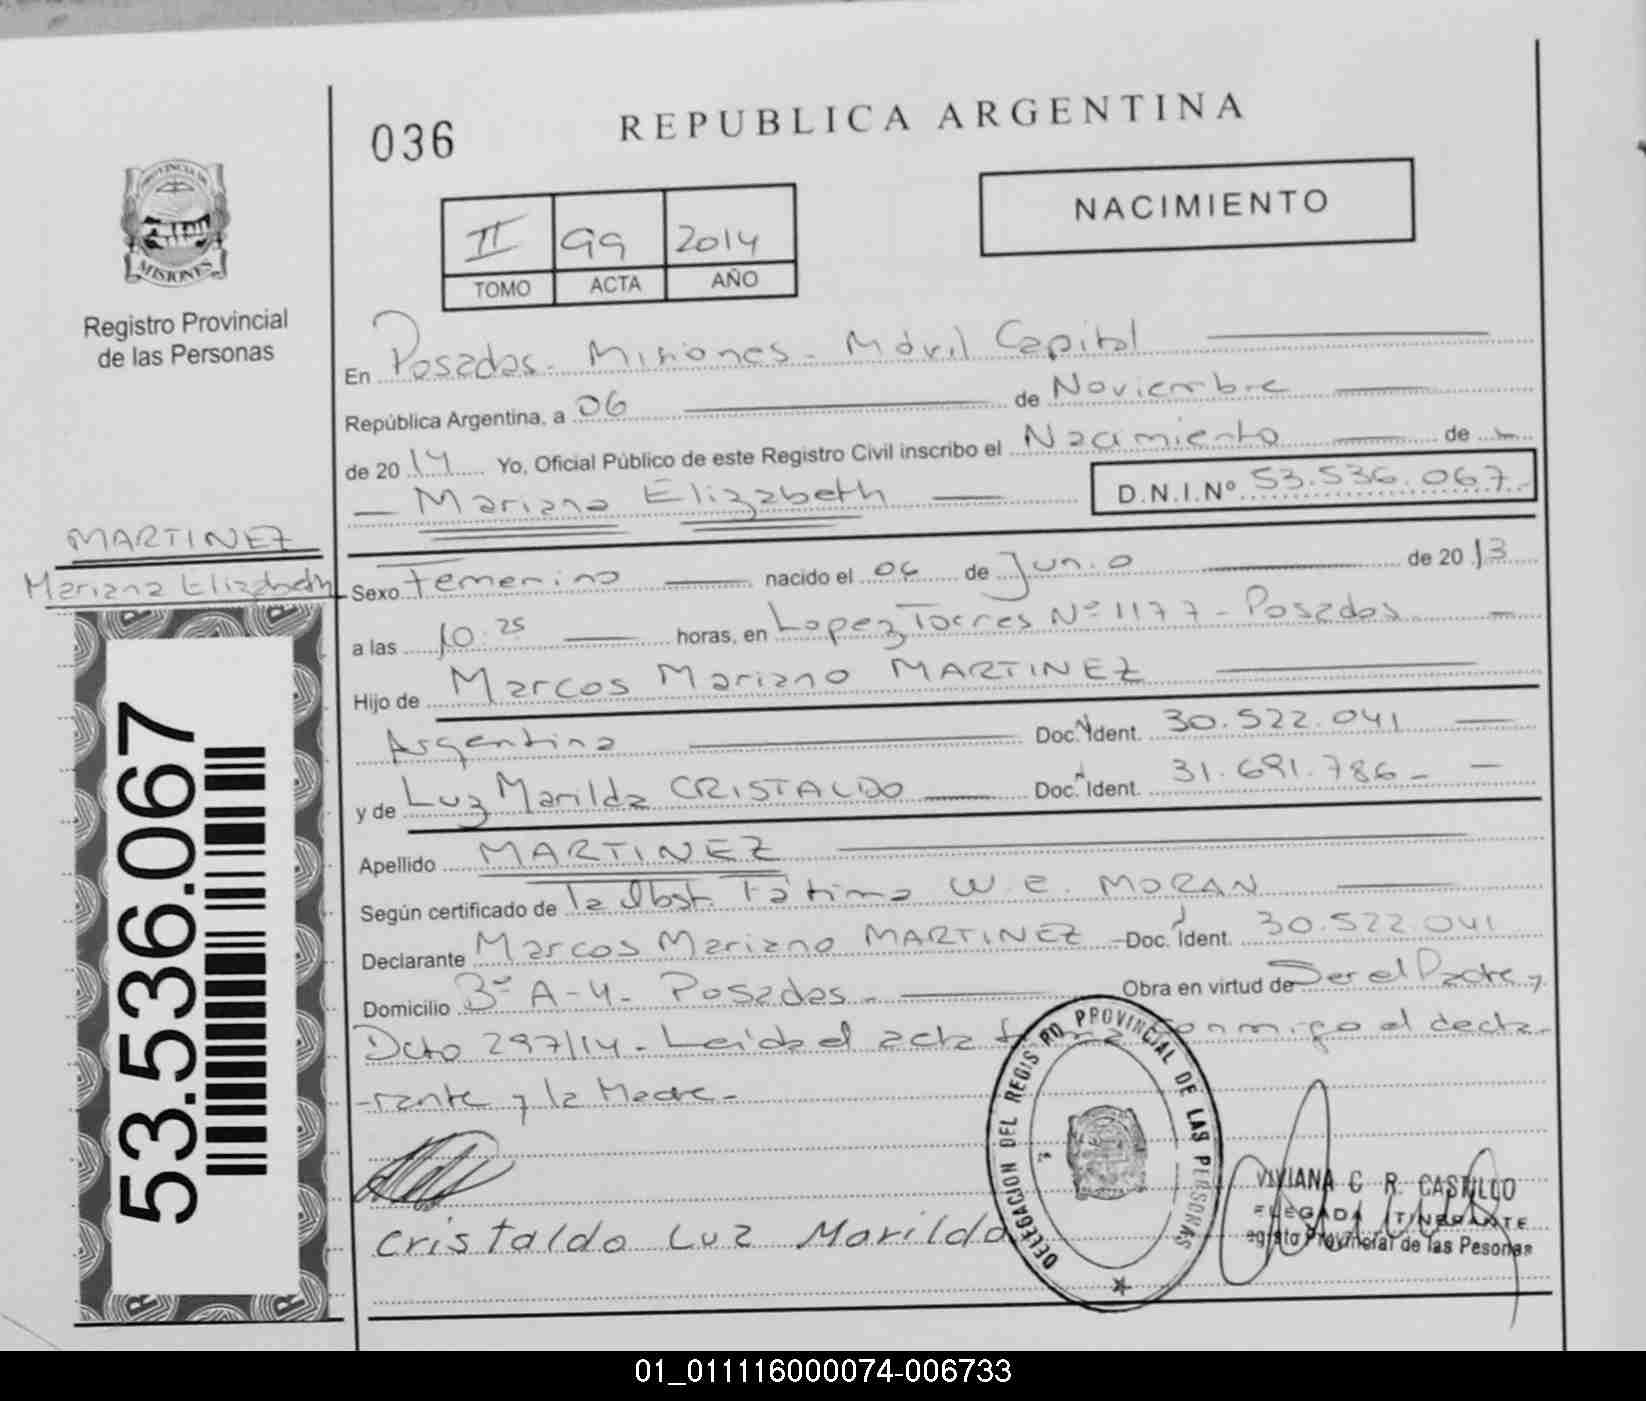 036
REPUBLICA ARGENTINA
NACIMIENTO
II 99 2014
TOMO ACTA AÑO
MISIONES
Registro Provincial
de las Personas
En Posadas - Misiones - Móvil Capital
República Argentina, a 06 de Noviembre
de 2014 Yo, Oficial Público de este Registro Civil inscribo el Nacimiento de
Mariana Elizabeth D.N.I.Nº 53.536.067
MARTINEZ
Mariana Elizabeth
Sexo Femenino nacido el 06 de Junio de 2013
a las 10:25 horas, en Lopez Torres Nº 1177 - Posadas
Hijo de Marcos Mariano MARTINEZ
Argentina Doc. Ident. 30.522.041
y de Luz Marilda CRISTALDO Doc. Ident. 31.691.786
Apellido MARTINEZ
Según certificado de la Obst. Fátima W. E. MORAN
Declarante Marcos Mariano MARTINEZ Doc. Ident. 30.522.041
Domicilio A-4 - Posadas - Obra en virtud de Ser el Padre y
Dcto 297/14 - Leida el acta firma conmigo el decla-
-rante y la Madre -
53.536.067
DELEGACION DEL REGISTRO PROVINCIAL DE LAS PERSONAS
Cristaldo Luz Marilda
VIVIANA C R. CASTILLO
ELEGADA ITINERANTE
egistro Provincial de las Pesonas
01_011116000074-006733